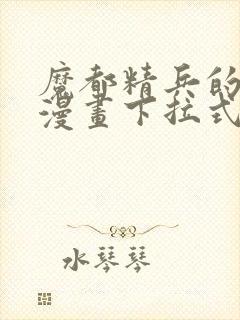 魔都精兵的
漫畫下拉式
水琴琴